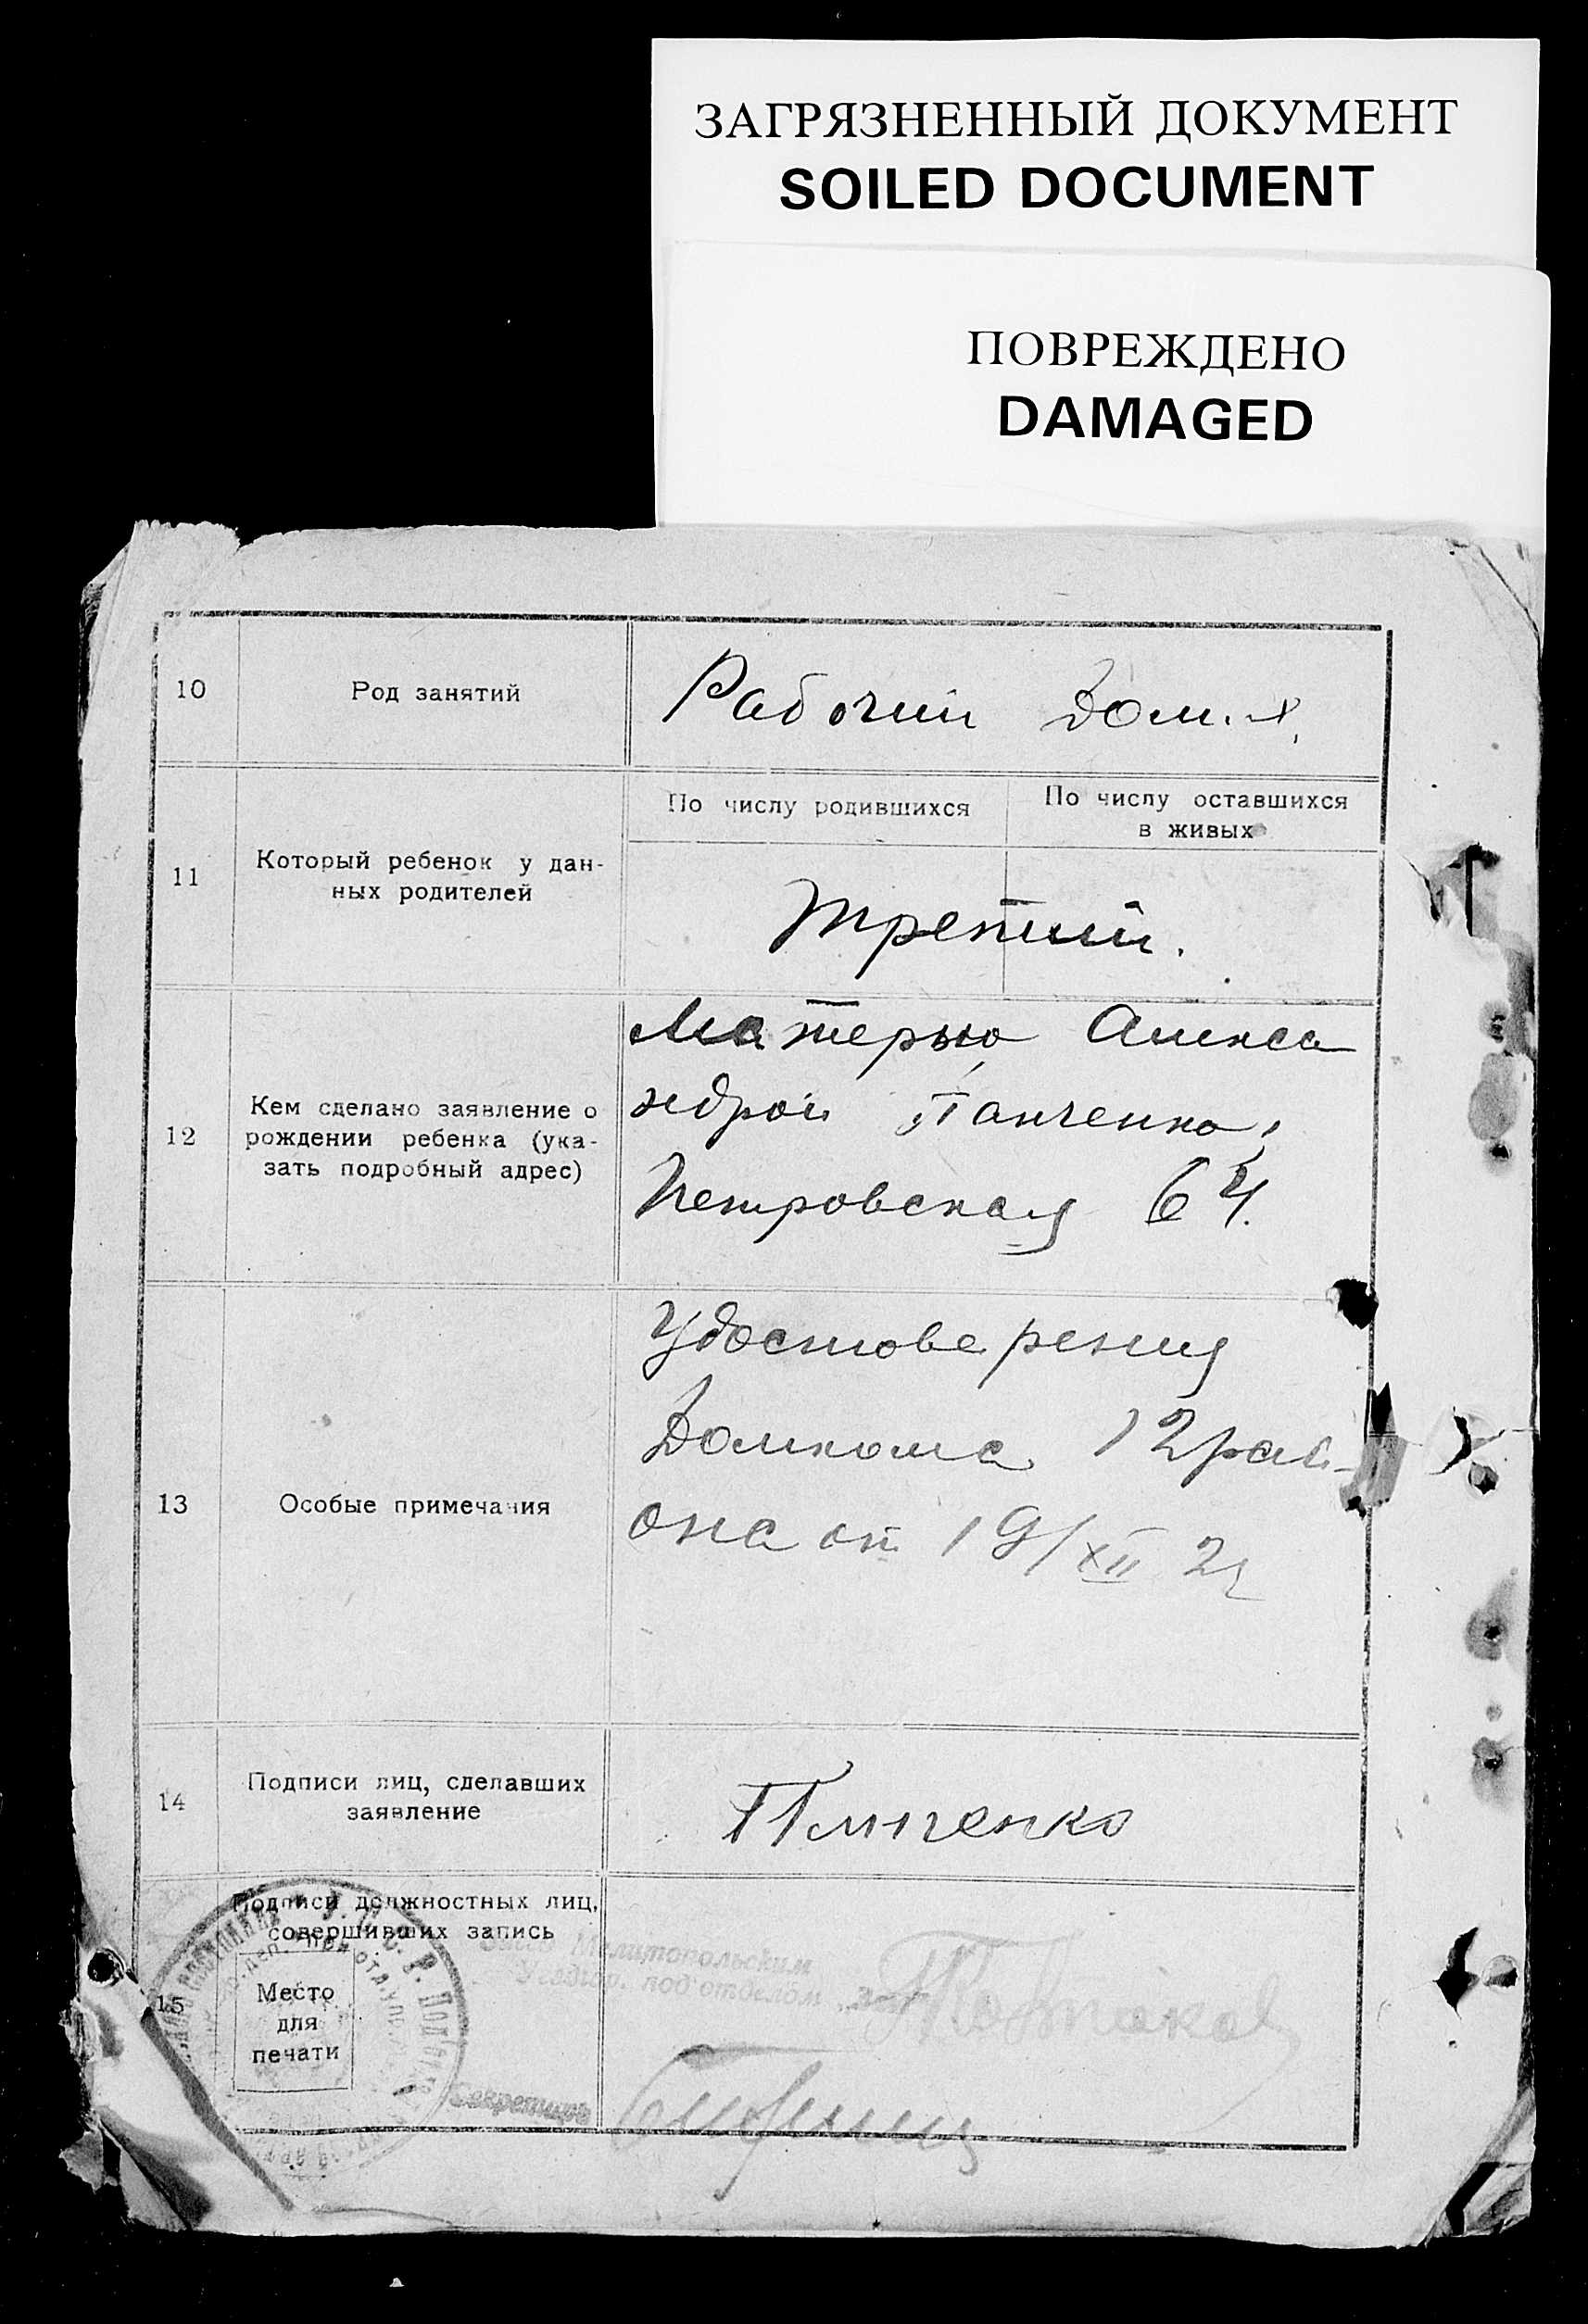 ЗАГРЯЗНЕННЫЙ ДОКУМЕНТ
SOILED DOCUMENT
ПОВРЕЖДЕНО
DAMAGED
10
Род занятий
Рабочий Дом. х.
11
Который ребенок у дан-
ных родителей
По числу родившихся
По числу оставшихся
в живых
Третий.
12
Кем сделано заявление о
рождении ребенка (ука-
зать подробный адрес)
Матерью Алекса
ндрой Панченко,
Петровская 64.
13
Особые примечания
Удостоверения
Домкома 12 рай-
она от 19/XII 2
14
Подписи лиц, сделавших
заявление
Панченко
15
Подписи должностных лиц,
совершивших запись
Место
для
печати
Мелитопольским
под'отделом
Секретарь